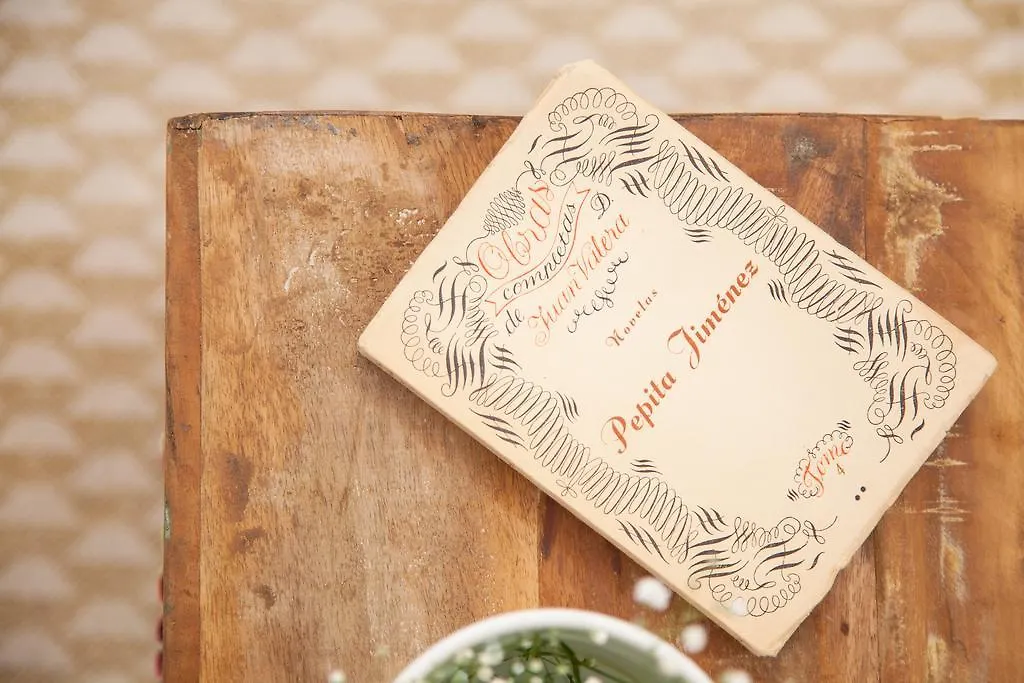 Obras
completas
de D.
Juan Valera
Novelas
Pepita Jiménez
Tomo
4